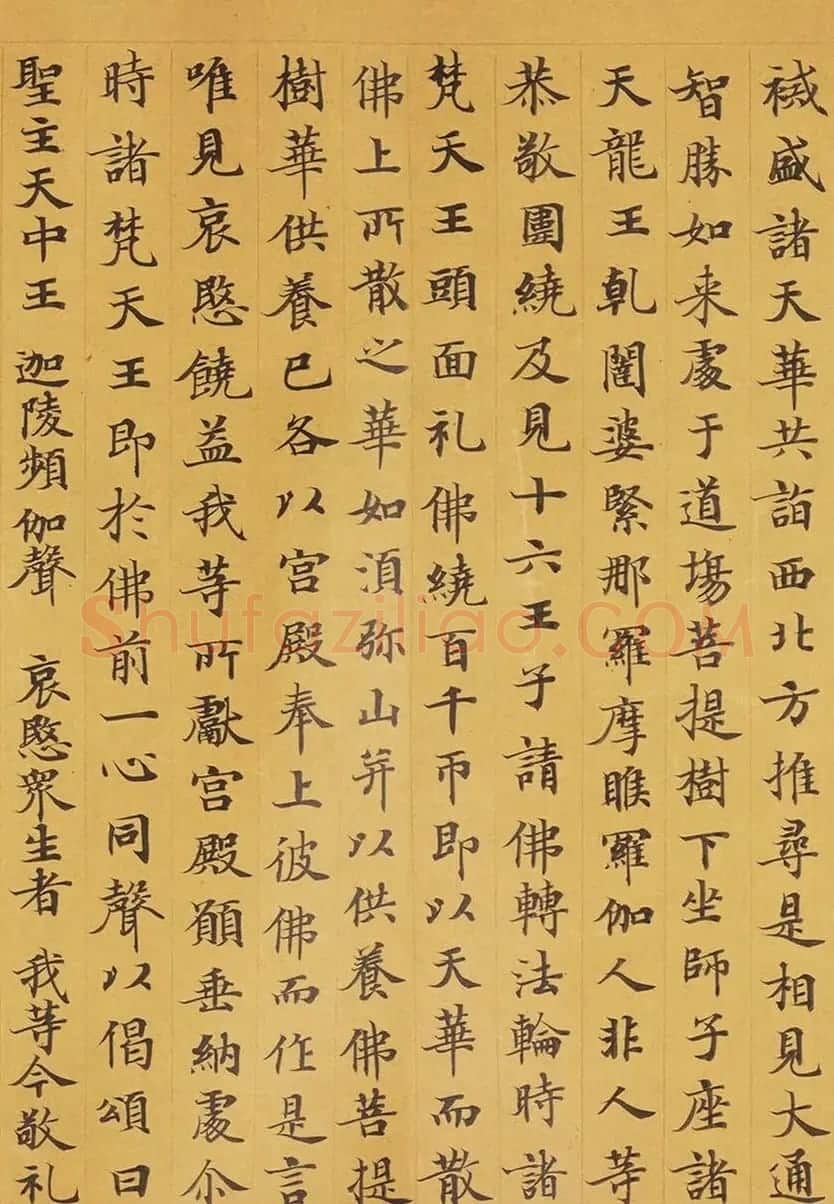 裓盛諸天華共詣西北方推尋是相見大通
智勝如来處于道場菩提樹下坐師子座諸
天龍王乹闥婆緊那羅摩睺羅伽人非人等
恭敬圍繞及見十六王子請佛轉法輪時諸
梵天王頭面礼佛繞百千帀即以天華而散
佛上所散之華如湏弥山并以供養佛菩提
樹華供養已各以宮殿奉上彼佛而作是言
唯見哀愍饒益我等所獻宮殿願垂納處尒
時諸梵天王即於佛前一心同聲以偈頌曰
聖主天中王 迦陵頻伽聲 哀愍衆生者 我等今敬礼
Shufaziliao.COM